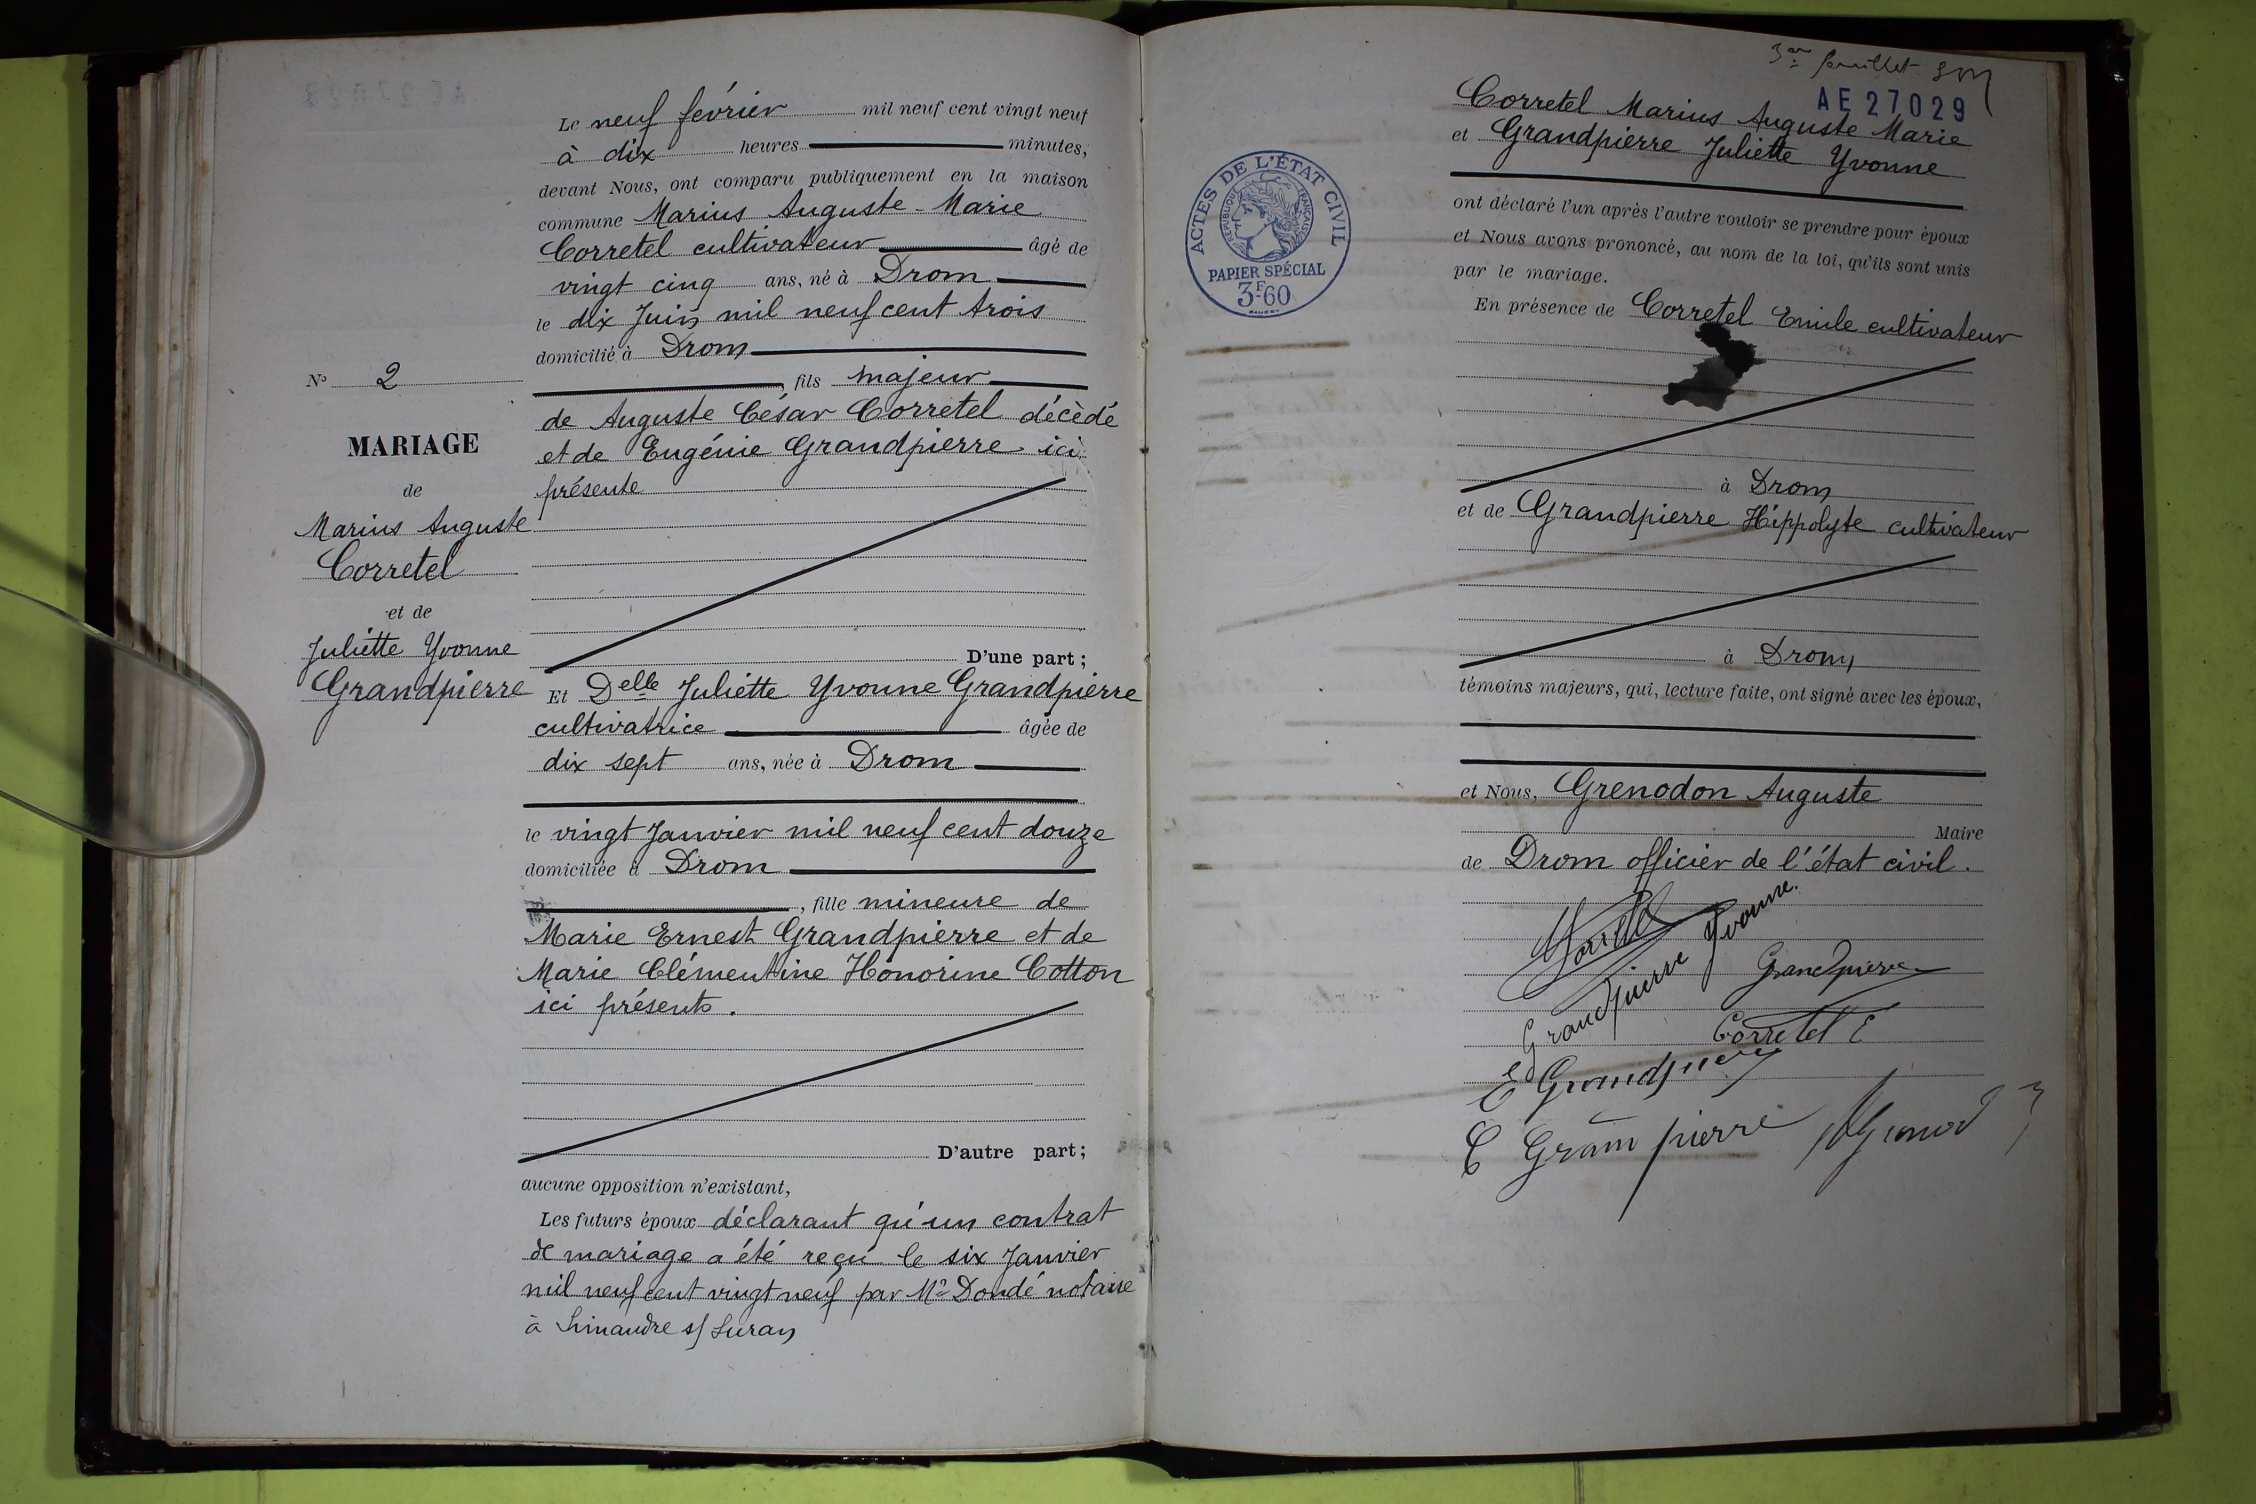 Le neuf février mil neuf cent vingt neuf
à dix heures minutes,
devant Nous, ont comparu publiquement en la maison
commune Marius Auguste-Marie
Corretel cultivateur âgé de
vingt cinq ans, né à Drom
le dix Juin mil neuf cent trois
domicilié à Drom
, fils majeur
de Auguste César Corretel décèdé
et de Eugénie Grandpierre ici
présente
D'une part ;
N° 2
MARIAGE
de
Marius Auguste
Corretel
et de
Juliette Yvonne
Grandpierre
Et Delle Juliette Yvonne Grandpierre
cultivatrice âgée de
dix sept ans, née à Drom
le vingt Janvier mil neuf cent douze
domiciliée à Drom
, fille mineure de
Marie Ernest Grandpierre et de
Marie Clémentine Honorine Cotton
ici présents.
D'autre part ;
aucune opposition n'existant,
Les futurs époux déclarant qu'un contrat
de mariage a été reçu le six Janvier
mil neuf cent vingt neuf par Me Dondé notaire
à Simandre s/ Suran
3me feuillet
AE 27029
Corretel Marius Auguste Marie
et Grandpierre Juliette Yvonne
ACTES DE L'ÉTAT CIVIL
RÉPUBLIQUE FRANÇAISE
PAPIER SPÉCIAL
3F60
ont déclaré l'un après l'autre vouloir se prendre pour époux
et Nous avons prononcé, au nom de la loi, qu'ils sont unis
par le mariage.
En présence de Corretel Emile cultivateur
à Drom
et de Grandpierre Hippolyte cultivateur
à Drom
témoins majeurs, qui, lecture faite, ont signé avec les époux,
et Nous, Grenodon Auguste
Maire
de Drom officier de l'état civil.
Corretel
Grandpierre Yvonne.
Grandpierre
Corretel E
E Grandpierre
C Grampierre